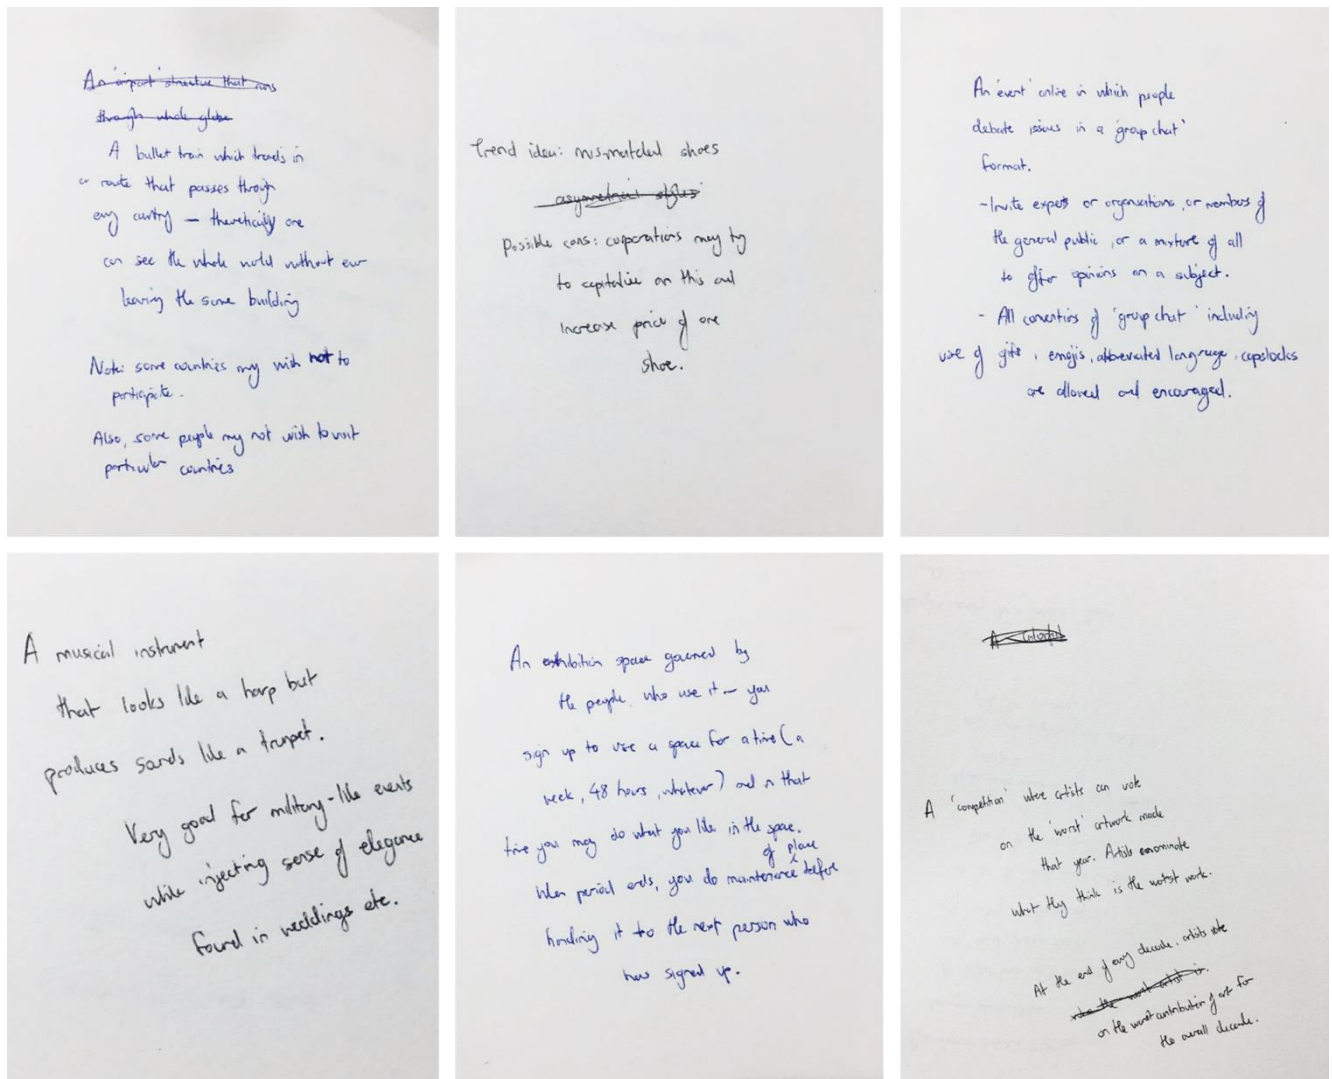 An 'airport' structure that runs
through whole globe
A bullet train which travels in
a route that passes through
every country — theoretically one
can see the whole world without ever
leaving the same building
Note: some countries may wish not to
participate.
Also, some people may not wish to visit
particular countries
Trend idea: mismatched shoes
asymmetrical styles
Possible cons: corporations may try
to capitalise on this and
increase price of one
shoe.
An 'event' online in which people
debate issues in a 'group chat'
format.
- Invite experts or organisations, or members of
the general public, or a mixture of all
to offer opinions on a subject.
- All conventions of 'group chat' including
use of gifs, emojis, abbreviated language, capslocks
are allowed and encouraged.
A musical instrument
that looks like a harp but
produces sounds like a trumpet.
Very good for military-like events
while injecting sense of elegance
found in weddings etc.
An exhibition space governed by
the people who use it — you
sign up to use a space for a time (a
week, 48 hours, whatever) and in that
time you may do what you like in the space.
When period ends, you do maintenance of place before
handing it to the next person who
has signed up.
A
A 'competition' where artists can vote
on the 'worst' artwork made
that year. Artists nominate
what they think is the worst work.
At the end of every decade, artists vote
the worst artist
on the worst contribution of art for
the overall decade.